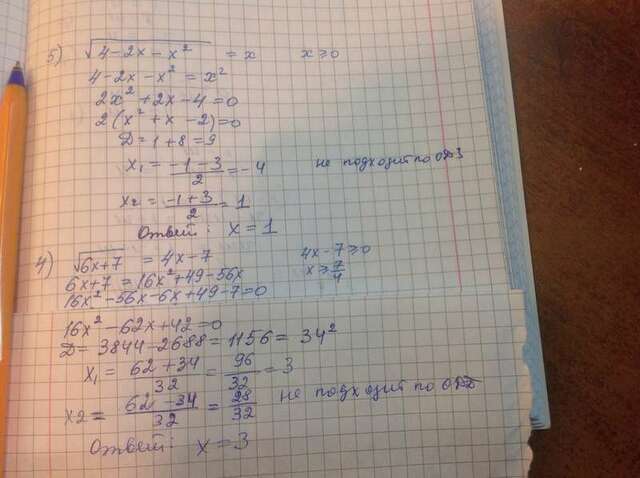 5) √(4-2x-x²) = x x ≥ 0
4-2x-x² = x²
2x²+2x-4=0
2(x²+x-2)=0
Д=1+8=9
x₁ = (-1-3)/2 = -4 не подходит по ОДЗ
x2 = (-1+3)/2 = 1
Ответ: x=1
4) √(6x+7) = 4x-7 4x-7≥0
6x+7 = 16x²+49-56x x≥7/4
16x²-56x-6x+49-7=0
16x²-62x+42=0
Д= 3844-2688=1156=34²
x₁ = (62+34)/32 = 96/32 = 3
x2 = (62-34)/32 = 28/32 не подходит по ОДЗ
Ответ: x=3